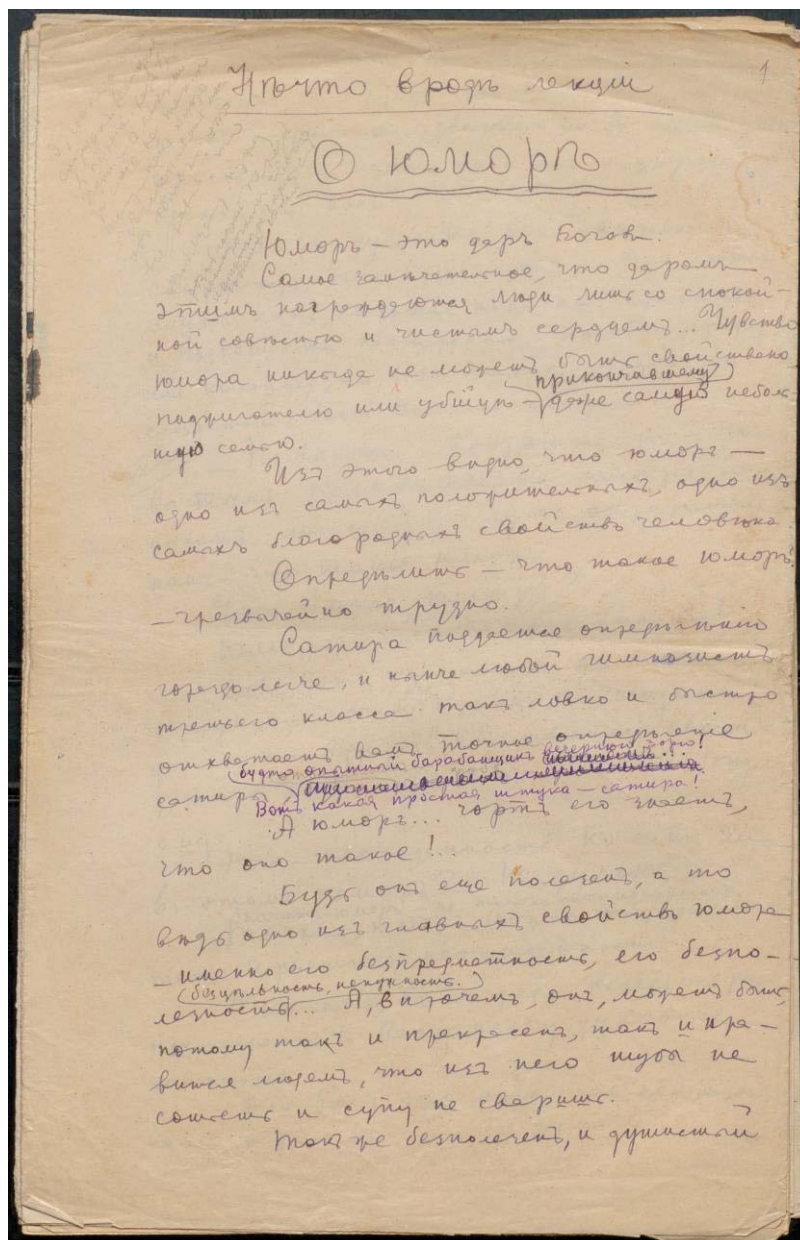 1
Нѣчто вродѣ лекціи
О юморѣ
Юморъ – это даръ Боговъ.
Самое замѣчательное, что даромъ
этимъ награждаются люди лишь со спокой-
ной совѣстью и чистымъ сердцемъ... Чувство
юмора никогда не можетъ быть свойственно
прикончившему
поджигателю или убійцѣ – даже самую неболь-
шую семью.
Изъ этого видно, что юморъ —
одно изъ самыхъ положительныхъ, одно изъ
самыхъ благородныхъ свойствъ человѣка.
Опредѣлить – что такое юморъ?
– чрезвычайно трудно.
Сатира поддается опредѣленію
гораздо легче, и нынче любой гимназистъ
третьего класса такъ ловко и быстро
отхватаетъ вамъ точное опредѣленіе
будто опытный барабанщикъ вечернюю зорю!
сатиры,
Вотъ какая простая штука – сатира!
А юморъ... чортъ его знаетъ,
что оно такое!..
Будь онъ еще полезенъ, а то
вѣдь одно изъ главныхъ свойствъ юмора
– именно его безпредметность, его безпо-
(безцѣльность, ненужность.)
лезность... А, впрочемъ, онъ, можетъ быть,
потому такъ и прекрасенъ, такъ и нра-
вится людямъ, что изъ него шубы не
сошьешь и супу не сваришь.
Такъ же безполезенъ, и душистый